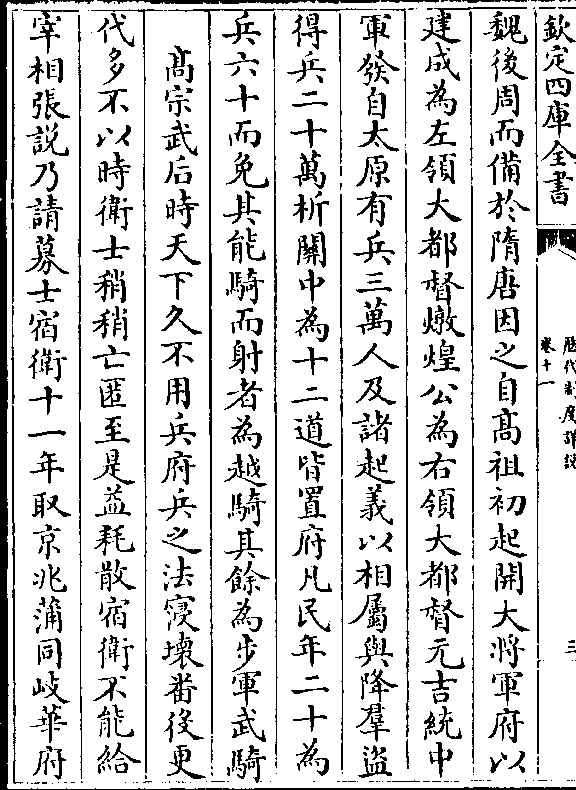 欽定四庫全書
歷代制度詳說
卷十一
三
魏後周而備於隋唐因之自髙祖初起開大將軍府以
建成為左領大都督燉煌公為右領大都督元吉統中
軍發自太原有兵三萬人及諸起義以相屬與降羣盜
得兵二十萬析關中為十二道皆置府凡民年二十為
兵六十而免其能騎而射者為越騎其餘為步軍武騎
髙宗武后時天下久不用兵府兵之法寖壊番後更
代多不以時衛士稍稍亡匿至是益耗散宿衛不能給
宰相張說乃請募士宿衛十一年取京兆蒲同岐華府